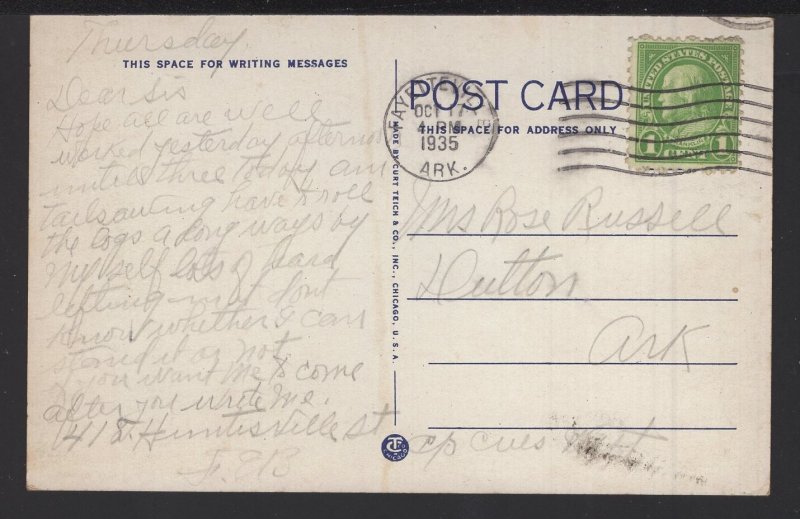 Thursday
THIS SPACE FOR WRITING MESSAGES
Dear Sis
Hope all are well
worked yesterday afternoon
until three today am
have to roll
the logs a long ways by
my self lots of hard
lifting dont
know whether I can
stand it or not
you want me to come
after you write me.
St
POST CARD
THIS SPACE FOR ADDRESS ONLY
OCT 17
4 PM
1935
ARK.
UNITED STATES POSTAGE
1 CENT 1
MADE BY CURT TEICH & CO., INC., CHICAGO, U.S.A.
Mrs Rose Russell
Hutton
Ark
CHICAGO